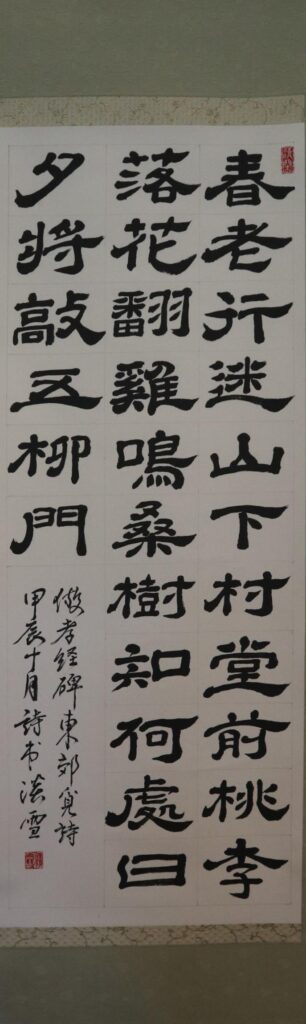 春老行迷山下村堂前桃李
落花翻雞鳴桑樹知何處曰
夕將敲五柳門
倣孝經碑東郊覓詩
甲辰十月詩書淡雪